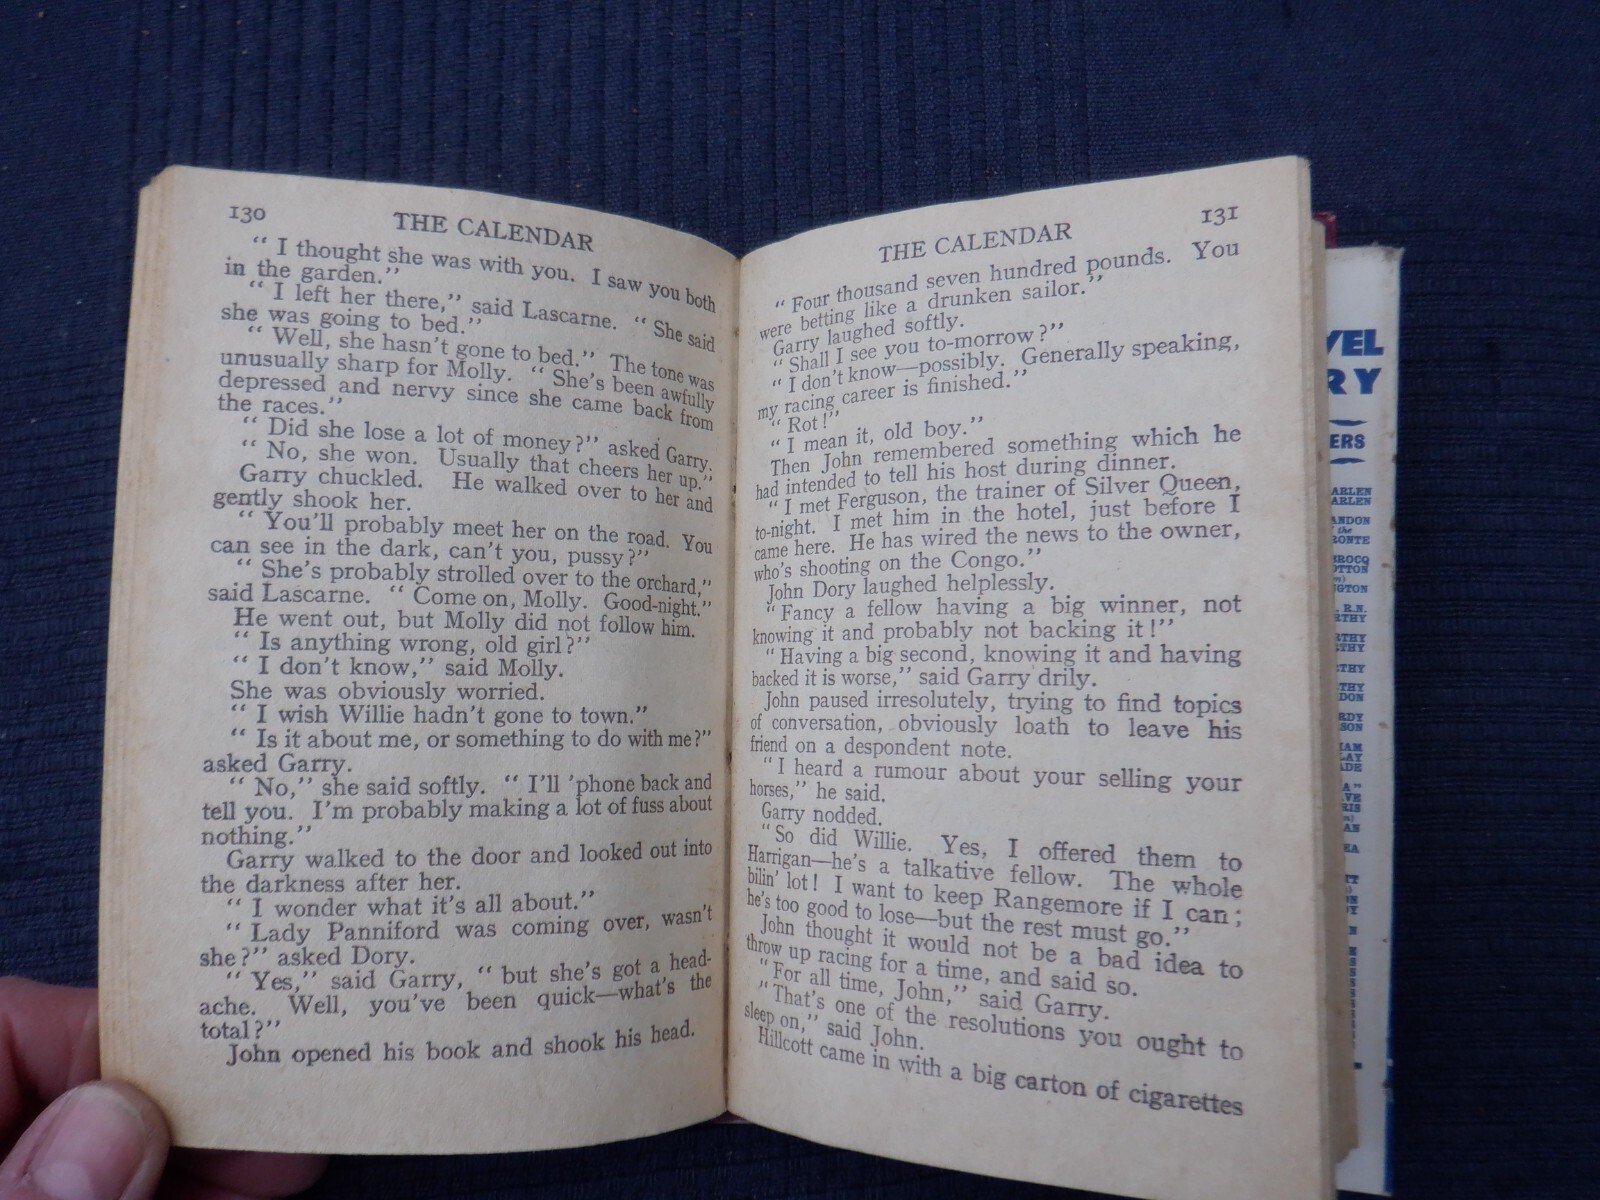 130
THE CALENDAR
“ I thought she was with you. I saw you both
in the garden.”
“ I left her there,” said Lascarne. “ She said
she was going to bed.”
“ Well, she hasn't gone to bed.” The tone was
unusually sharp for Molly. “ She's been awfully
depressed and nervy since she came back from
the races.”
“ Did she lose a lot of money?” asked Garry.
“ No, she won. Usually that cheers her up.”
Garry chuckled. He walked over to her and
gently shook her.
“ You'll probably meet her on the road. You
can see in the dark, can't you, pussy?”
“ She's probably strolled over to the orchard,”
said Lascarne. “ Come on, Molly. Good-night.”
He went out, but Molly did not follow him.
“ Is anything wrong, old girl?”
“ I don't know,” said Molly.
She was obviously worried.
“ I wish Willie hadn't gone to town.”
“ Is it about me, or something to do with me?”
asked Garry.
“ No,” she said softly. “ I'll 'phone back and
tell you. I'm probably making a lot of fuss about
nothing.”
Garry walked to the door and looked out into
the darkness after her.
“ I wonder what it's all about.”
“ Lady Panniford was coming over, wasn't
she?” asked Dory.
“ Yes,” said Garry, “ but she's got a head-
ache. Well, you've been quick—what's the
total?”
John opened his book and shook his head.
THE CALENDAR
131
“ Four thousand seven hundred pounds. You
were betting like a drunken sailor.”
Garry laughed softly.
“ Shall I see you to-morrow?”
“ I don't know—possibly. Generally speaking,
my racing career is finished.”
“ Rot!”
“ I mean it, old boy.”
Then John remembered something which he
had intended to tell his host during dinner.
“ I met Ferguson, the trainer of Silver Queen,
to-night. I met him in the hotel, just before I
came here. He has wired the news to the owner,
who's shooting on the Congo.”
John Dory laughed helplessly.
“ Fancy a fellow having a big winner, not
knowing it and probably not backing it!”
“ Having a big second, knowing it and having
backed it is worse,” said Garry drily.
John paused irresolutely, trying to find topics
of conversation, obviously loath to leave his
friend on a despondent note.
“ I heard a rumour about your selling your
horses,” he said.
Garry nodded.
“ So did Willie. Yes, I offered them to
Harrigan—he's a talkative fellow. The whole
bilin' lot! I want to keep Rangemore if I can;
he's too good to lose—but the rest must go.”
John thought it would not be a bad idea to
throw up racing for a time, and said so.
“ For all time, John,” said Garry.
“ That's one of the resolutions you ought to
sleep on,” said John.
Hillcott came in with a big carton of cigarettes
VEL
RY
ERS
ARLEN
ARLEN
ANDON
the
RONTE
BROCQ
OTTON
NGTON
R.N.